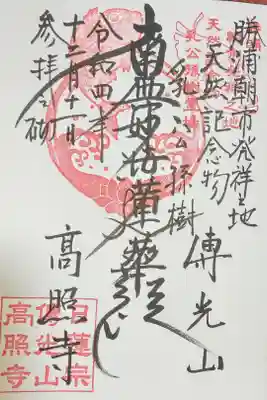 勝浦朝市発祥之地
天然記念物
乳公孫樹
傳光山
南無妙法蓮華経
高照寺
令和四年
十二月十一日
参拝之砌
日蓮宗
傳光山
高照寺